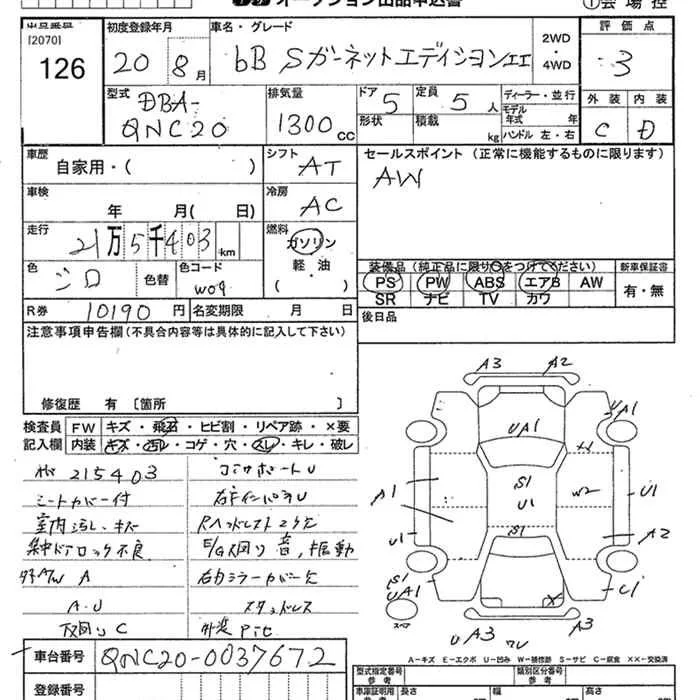 オークション出品申込書
①会場控
出品番号
[2070]
126
初度登録年月
20 8月
車名・グレード
bB Sガーネットエディション II
2WD
・
4WD
評価点
3
型式
DBA-
QNC20
排気量
1300 cc
ドア 5
定員 5 人
形状
積載 kg
ディーラー・並行
モデル年式 年
ハンドル 左・右
外装 内装
C D
車歴
自家用・( )
シフト
AT
セールスポイント (正常に機能するものに限ります)
AW
車検
年 月( 日)
冷房
AC
走行
21万5千403 km
燃料
ガソリン
・
軽・油
( )
色
シロ
色替
色コード
W09
装備品 (純正品に限り○をつけてください)
PS PW ABS エアB AW
SR ナビ TV カワ
新車保証書
有・無
R券 10190 円
名変期限 月 日
後日品
注意事項申告欄(不具合内容等は具体的に記入して下さい)
修復歴 有 [箇所 ]
検査員
記入欄
FW キズ・飛石・ヒビ割・リペア跡・×要
内装 キズ・汚レ・コゲ・穴・スレ・キレ・破レ
215403
シートカバー付
室内汚れ・キズ
集中ドアロック不良
A
A・U
下回り C
コアサポートU
右インパネU
Rヘッドレスト2ケ欠
E/G回り音, 振動
右ミラーカバー欠
スタッドレス
外装 Pit
A3 A2
UA1
UA1
S1
U1
W2
A1
U1
U1
A2
S1
UA1
S1
U1
スペア
X
U A3
A3
A-キズ E-エクボ U-凹み W-補修跡 S-サビ C-腐食 XX-交換済
車台番号
QNC20-0037672
登録番号
型式指定番号
参考
類別区分番号
参考
車庫証明用
参考
長さ
幅
高さ